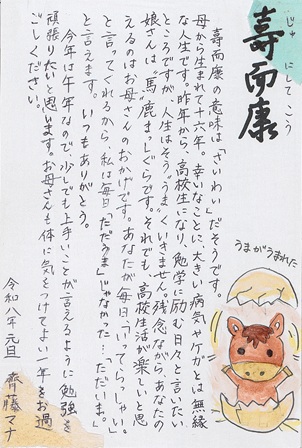 壽而康
じゅ にして こう
壽而康の意味は「さいわい」だそうです。
母から生まれて十六年。幸いなことに、大きい病気やケガとは無縁
な人生です。昨年から、高校生になり、勉学に励む日々と言いたい
ところですが、人生はそううまくいきません。残念ながら、あなたの
娘さんは〝馬〟鹿まっしぐらです。それでも、高校生活が楽しいと思
えるのはお母さんのおかげです。あなたが毎日「いってらっしゃい。」
と言ってくれるから、私は毎日「ただうま」じゃなかった…「ただいま。」
と言えます。いつもありがとう。
今年は午年なので少しでも上手いことが言えるように勉強を
頑張りたいと思います。お母さんも体に気をつけてよい一年をお過
ごしください。
令和八年 元旦 齊藤マナ
うまがうまれた